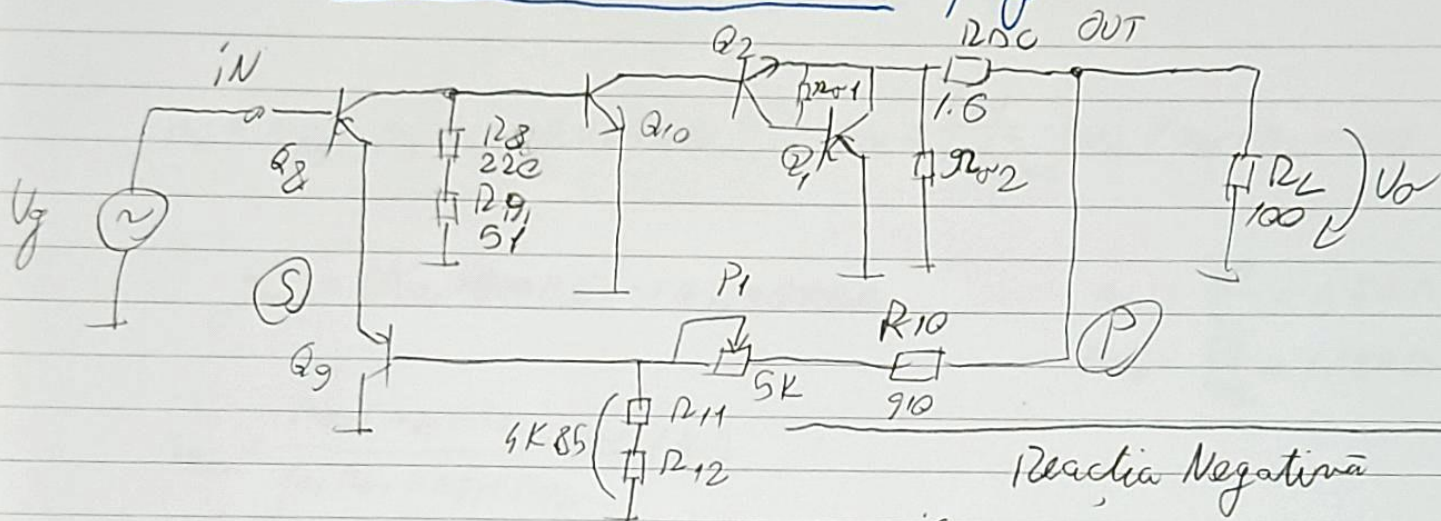 RDC OUT
iN
Q2
rπ1
1.6
Q10
Q8
R8
220
Q1
rπ2
RL
100
Vo
Vg
R9
51
S
P1
R10
P
Q9
5K
910
4K85
R11
R12
Reacția Negativă